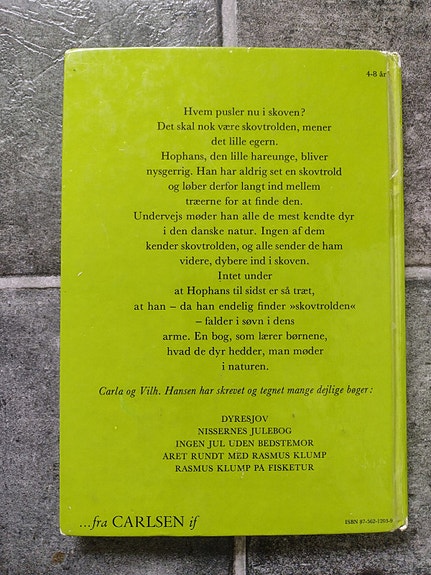 4-8 år
Hvem pusler nu i skoven?
Det skal nok være skovtrolden, mener
det lille egern.
Hophans, den lille hareunge, bliver
nysgerrig. Han har aldrig set en skovtrold
og løber derfor langt ind mellem
træerne for at finde den.
Undervejs møder han alle de mest kendte dyr
i den danske natur. Ingen af dem
kender skovtrolden, og alle sender de ham
videre, dybere ind i skoven.
Intet under
at Hophans til sidst er så træt,
at han – da han endelig finder »skovtrolden«
– falder i søvn i dens
arme. En bog, som lærer børnene,
hvad de dyr hedder, man møder
i naturen.
Carla og Vilh. Hansen har skrevet og tegnet mange dejlige bøger:
DYRESJOV
NISSERNES JULEBOG
INGEN JUL UDEN BEDSTEMOR
ÅRET RUNDT MED RASMUS KLUMP
RASMUS KLUMP PÅ FISKETUR
...fra CARLSEN if
ISBN 87-562-1203-9